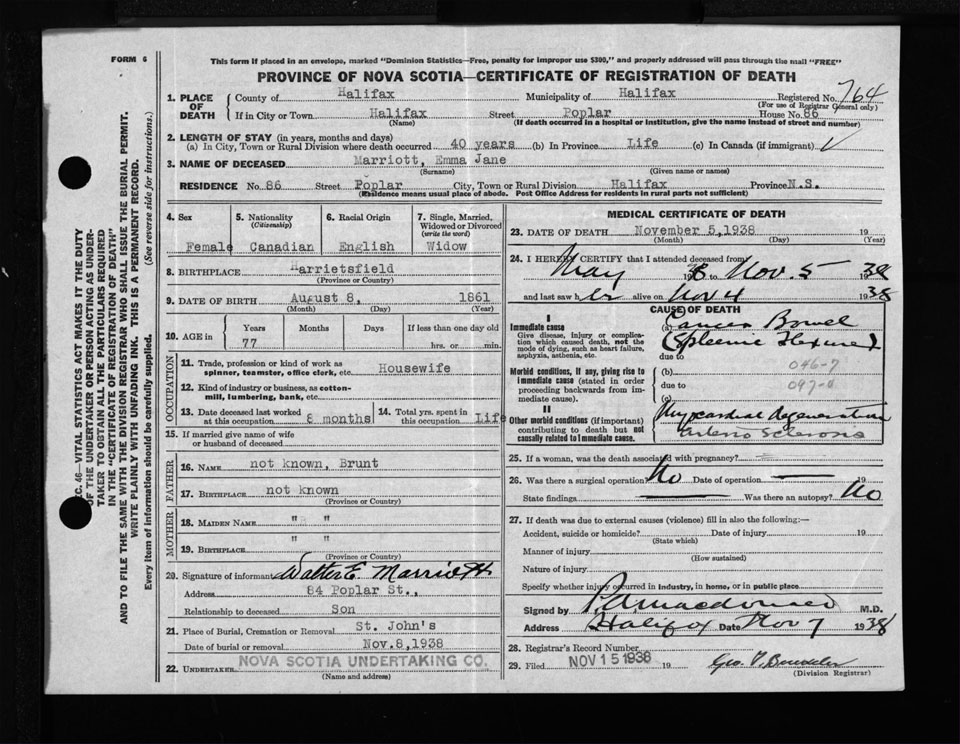 FORM 6
This form if placed in an envelope, marked "Dominion Statistics—Free, penalty for improper use $300," and properly addressed will pass through the mail "FREE"
PROVINCE OF NOVA SCOTIA—CERTIFICATE OF REGISTRATION OF DEATH
1. PLACE OF DEATH
County of Halifax Municipality of Halifax Registered No. 764
(For use of Registrar General only)
If in City or Town Halifax Street Poplar House No. 86
(Name) (If death occurred in a hospital or institution, give the name instead of street and number)
2. LENGTH OF STAY (in years, months and days)
(a) In City, Town or Rural Division where death occurred 40 years (b) In Province Life (c) In Canada (if immigrant)
3. NAME OF DECEASED Marriott, Emma Jane
(Surname) (Given name or names)
RESIDENCE No. 86 Street Poplar City, Town or Rural Division Halifax Province N.S.
(Residence means usual place of abode. Post Office Address for residents in rural parts not sufficient)
4. Sex Female
5. Nationality (Citizenship) Canadian
6. Racial Origin English
7. Single, Married, Widowed or Divorced (write the word) Widow
8. BIRTHPLACE Harrietsfield
(Province or Country)
9. DATE OF BIRTH August 8, 1861
(Month) (Day) (Year)
10. AGE in Years 77 Months Days If less than one day old hrs. or min.
OCCUPATION
11. Trade, profession or kind of work as spinner, teamster, office clerk, etc. Housewife
12. Kind of industry or business, as cotton-mill, lumbering, bank, etc.
13. Date deceased last worked at this occupation 8 months 14. Total yrs. spent in this occupation Life
15. If married give name of wife or husband of deceased
FATHER
16. NAME not known, Brunt
17. BIRTHPLACE not known
(Province or Country)
MOTHER
18. MAIDEN NAME " "
19. BIRTHPLACE " "
(Province or Country)
20. Signature of informant Walter E. Marriott
Address 84 Poplar St.,
Relationship to deceased Son
21. Place of Burial, Cremation or Removal St. John's
Date of burial or removal Nov.8,1938
22. UNDERTAKER NOVA SCOTIA UNDERTAKING CO.
(Name and address)
MEDICAL CERTIFICATE OF DEATH
23. DATE OF DEATH November 5,1938 19
(Month) (Day) (Year)
24. I HEREBY CERTIFY that I attended deceased from
May 1938 to Nov. 5 1938
and last saw her alive on Nov 4 1938
CAUSE OF DEATH
I
Immediate cause
Give disease, injury or complication which caused death, not the mode of dying, such as heart failure, asphyxia, asthenia, etc.
(a) Cancer Bowel
(Spleenic Flexure)
due to
Morbid conditions, if any, giving rise to immediate cause (stated in order proceeding backwards from immediate cause).
(b) 046-7
due to
(c)
II
Other morbid conditions (if important) contributing to death but not causally related to immediate cause.
Myocardial degeneration
Arterio Sclerosis
25. If a woman, was the death associated with pregnancy?
26. Was there a surgical operation? No Date of operation 19
State findings Was there an autopsy? No
27. If death was due to external causes (violence) fill in also the following:—
Accident, suicide or homicide? Date of injury 19
(State which)
Manner of injury
(How sustained)
Nature of injury
Specify whether injury occurred in industry, in home, or in public place
Signed by M.D.
Address Halifax Date Nov 7 1938
28. Registrar's Record Number
29. Filed NOV 15 1938 19
(Division Registrar)
SEC. 46—VITAL STATISTICS ACT MAKES IT THE DUTY
OF THE UNDERTAKER OR PERSON ACTING AS UNDER-
TAKER TO OBTAIN ALL THE PARTICULARS REQUIRED
IN THE "CERTIFICATE OF REGISTRATION OF DEATH"
AND TO FILE THE SAME WITH THE DIVISION REGISTRAR WHO SHALL ISSUE THE BURIAL PERMIT.
WRITE PLAINLY WITH UNFADING INK. THIS IS A PERMANENT RECORD.
Every item of information should be carefully supplied. (See reverse side for instructions.)